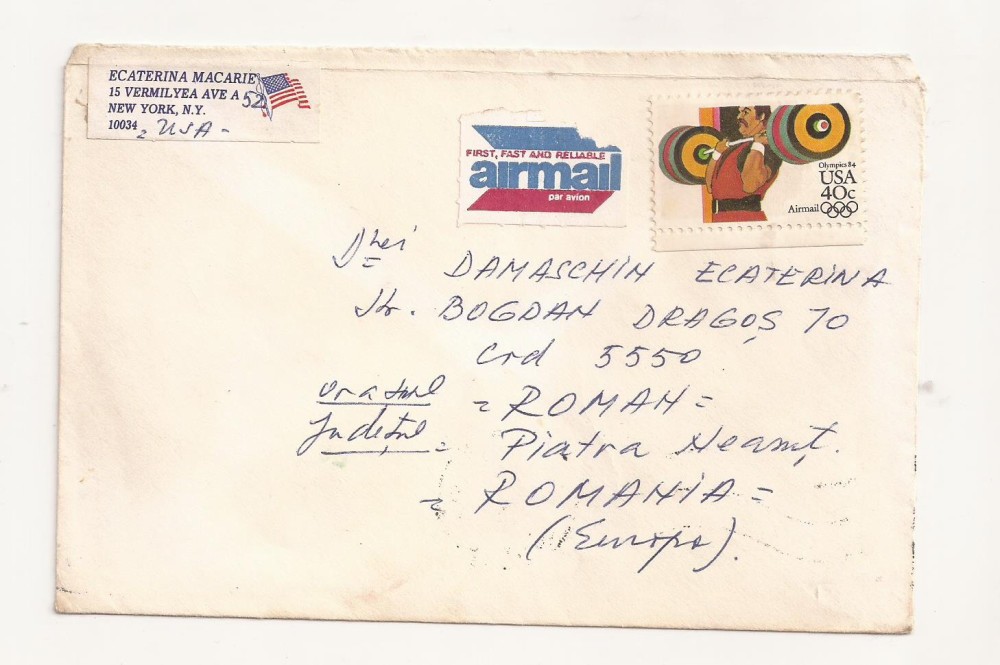 ECATERINA MACARIE
15 VERMILYEA AVE A 52
NEW YORK, N.Y.
10034, USA -
FIRST, FAST AND RELIABLE
airmail
par avion
Olympics 84
USA
40c
Airmail
Dnei DAMASCHIN ECATERINA
Str. BOGDAN DRAGOȘ 70
Crd 5550
orașul = ROMAN =
Județul = Piatra Neamț.
= ROMANIA =
(Europa).